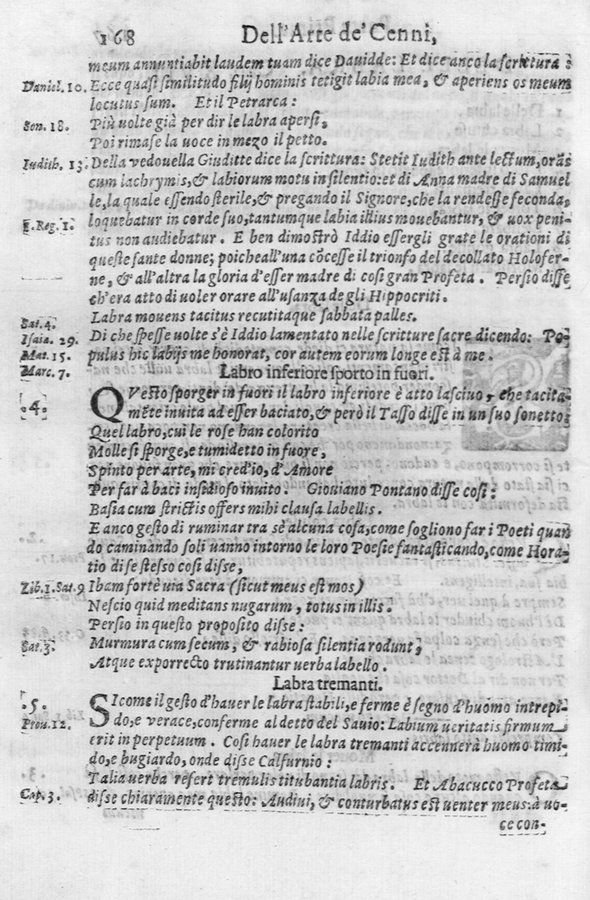 168 Dell'Arte de' Cenni,
meum annuntiabit laudem tuam dice Davidde: Et dice anco la scrittura :
Daniel. 10. Ecce quasi similitudo filij hominis tetigit labia mea, & aperiens os meum
locutus sum. Et il Petrarca :
Son. 18. Più uolte già per dir le labra apersi,
Poi rimase la uoce in mezo il petto.
Iudith. 13. Della vedouella Giuditte dice la scrittura: Stetit Iudith ante lectum, orãs
cum lachrymis, & labiorum motu in silentio: et di Anna madre di Samuel
le, la quale essendo sterile, & pregando il Signore, che la rendesse feconda,
1. Reg. 1. loquebatur in corde suo, tantumque labia illius mouebantur, & uox peni-
tus non audiebatur. E ben dimostrò Iddio essergli grate le orationi di
queste sante donne; poiche all'una cõcesse il trionfo del decollato Holofer-
ne, & all'altra la gloria d'esser madre di cosi gran Profeta. Persio disse
ch'era atto di uoler orare all'usanza de gli Hippocriti.
Sat. 4. Labra mouens tacitus recutitaque sabbata palles.
Isaia. 29. Di che spesse uolte s'è Iddio lamentato nelle scritture sacre dicendo: Po-
Mat. 15. pulus hic labijs me honorat, cor autem eorum longe est à me.
Marc. 7. Labro inferiore sporto in fuori.
.4. QVesto sporger in fuori il labro inferiore è atto lasciuo, che tacita-
mẽte inuita ad esser baciato, & però il Tasso disse in un suo sonetto;
Quel labro, cui le rose han colorito
Molle si sporge, e tumidetto in fuore,
Spinto per arte, mi cred'io, d'Amore
Per far à baci insidioso inuito. Giouiano Pontano disse cosi :
Basia cum strictis offers mihi clausa labellis.
E anco gesto di ruminar tra sè alcuna cosa, come sogliono far i Poeti quan
do caminando soli uanno intorno le loro Poesie fantasticando, come Hora-
tio di se stesso cosi disse,
Lib. 1. Sat. 9 Ibam fortè uia Sacra (sicut meus est mos)
Nescio quid meditans nugarum, totus in illis.
Persio in questo proposito disse :
Sat. 3. Murmura cum secum, & rabiosa silentia rodunt,
Atque exporrecto trutinantur uerba labello.
Labra tremanti.
.5. SIcome il gesto d'hauer le labra stabili, e ferme è segno d'huomo intrepi-
Prou. 12. do, e verace, conferme al detto del Sauio: Labium ueritatis firmum
erit in perpetuum. Cosi hauer le labra tremanti accennerà huomo timi-
do, e bugiardo, onde disse Calfurnio :
Talia uerba refert tremulis titubantia labris. Et Abacucco Profeta
Cap. 3. disse chiaramente questo: Audiui, & conturbatus est uenter meus: à uo-
ce con-